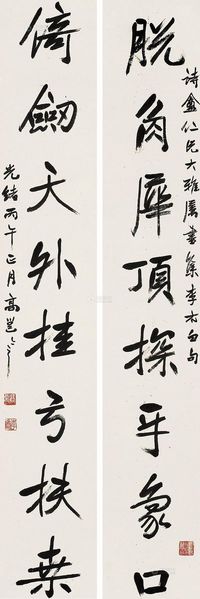 詩盦仁兄大雅屬書集李太白句
脫角犀頂探牙象口
倚劔天外挂弓扶桑
光緒丙午正月高邕